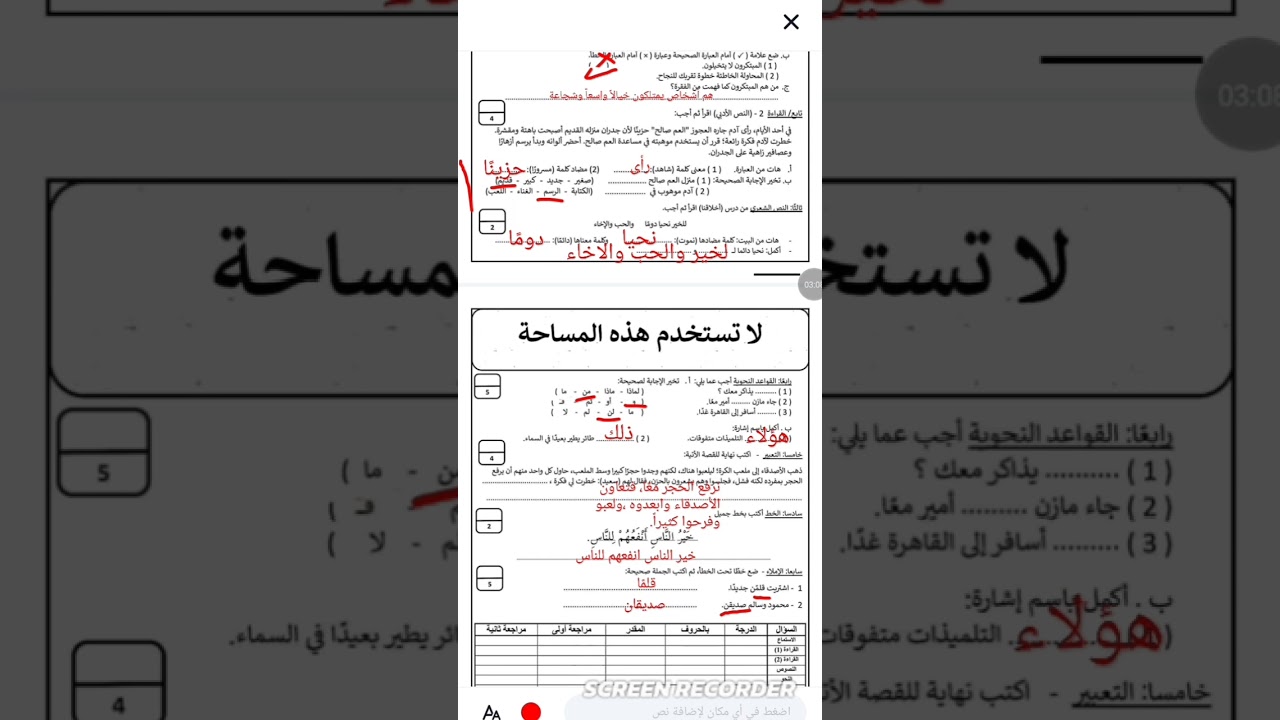 ب. ضع علامة ( ✓ ) أمام العبارة الصحيحة وعبارة ( × ) أمام العبارة الخطأ.
( 1 ) المبتكرون لا يتخيلون.
( 2 ) المحاولة الخاطئة خطوة تقربك للنجاح.
ج. من هم المبتكرون كما فهمت من الفقرة؟
هم أشخاص يمتلكون خيالاً واسعاً وشجاعة
4
تابع/ القراءة 2 - (النص الأدبي) اقرأ ثم أجب:
في أحد الأيام، رأى آدم جاره العجوز "العم صالح" حزينًا لأن جدران منزله القديم أصبحت باهتة ومقشرة.
خطرت لآدم فكرة رائعة؛ قرر أن يستخدم موهبته في مساعدة العم صالح. أحضر ألوانه وبدأ يرسم أزهارًا
وعصافير زاهية على الجدران.
أ. هات من العبارة. ( 1 ) معنى كلمة (شاهد): رأى (2) مضاد كلمة (مسرورًا): حزينًا
ب. تخير الإجابة الصحيحة: ( 1 ) منزل العم صالح .......... (صغير - جديد - كبير - قديم)
( 2 ) آدم موهوب في .......... (الكتابة - الرسم - الغناء - اللعب)
2
ثالثًا: النص الشعري من درس (أخلاقنا) اقرأ ثم أجب.
للخير نحيا دومًا والحب والإخاء
- هات من البيت: كلمة مضادها (نموت): نحيا وكلمة معناها (دائمًا): دومًا
- أكمل: نحيا دائما لـ لخير والحب والاخاء
لا تستخدم هذه المساحة
5
رابعًا: القواعد النحوية أجب عما يلي: أ. تخير الإجابة لصحيحة:
( 1 ) .......... يذاكر معك ؟ ( لماذا - ماذا - من - ما )
( 2 ) جاء مازن .......... أمير معًا. ( و - أو - ثم - فـ )
( 3 ) .......... أسافر إلى القاهرة غدًا. ( ما - لن - لم - لا )
ب . أكمل باسم إشارة:
( هؤلاء التلميذات متفوقات. ( 2 ) ذلك طائر يطير بعيدًا في السماء.
4
خامسا: التعبير - اكتب نهاية للقصة الآتية:
ذهب الأصدقاء إلى ملعب الكرة؛ ليلعبوا هناك، لكنهم وجدوا حجرًا كبيرا وسط الملعب، حاول كل واحد منهم أن يرفع
الحجر بمفرده لكنه فشل، فجلسوا وهم يشعرون بالحزن، فقال لهم (سعيد): خطرت لي فكرة ،
نرفع الحجر معًا، فتعاون
الأصدقاء وأبعدوه ،ولعبو
وفرحوا كثيراً.
2
سادسا: الخط اكتب بخط جميل
خَيْرُ النَّاسِ أَنْفَعُهُمْ لِلنَّاسِ.
خير الناس انفعهم للناس
5
سابعا: الإملاء - ضع خطًا تحت الخطأ، ثم اكتب الجملة صحيحة:
1 - اشتريت قلمن جديدًا. قلمًا
2 - محمود وسالم صديقن. صديقان
السؤال الدرجة بالحروف المقدر مراجعة أولى مراجعة ثانية
الاستماع
القراءة (1)
القراءة (2)
النصوص
النحو
SCREEN RECORDER
اضغط في أي مكان لإضافة نص